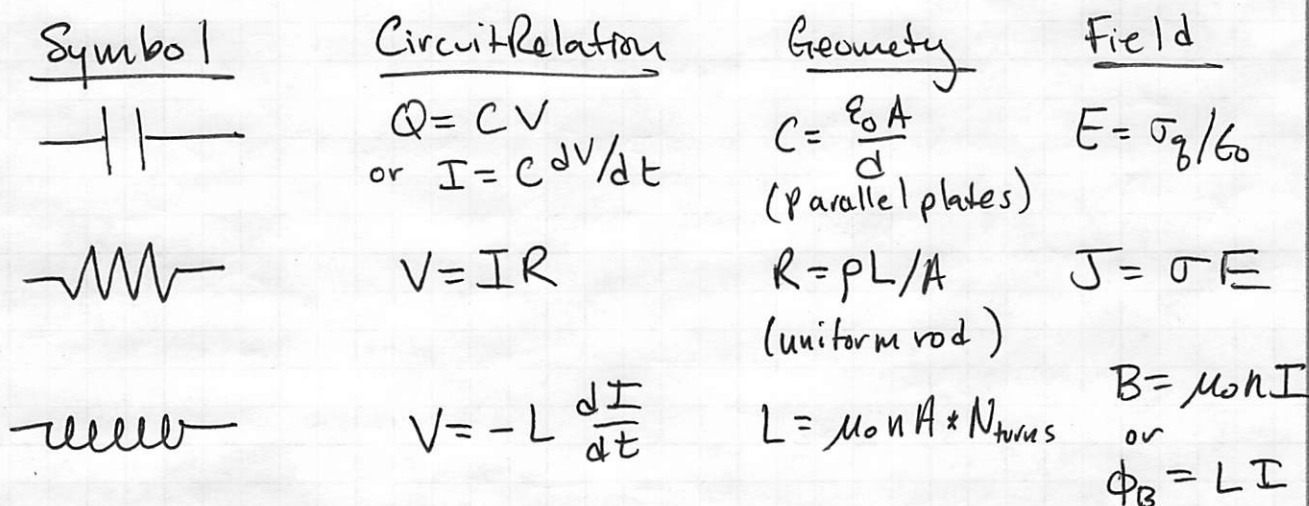 Symbol Circuit Relation Geometry Field
Q = CV
or I = C dV/dt
C = ε₀A/d
(parallel plates)
E = σ_q/ε₀
V = IR
R = ρL/A
(uniform rod)
J = σE
V = -L dI/dt
L = μ₀nA * N_turns
B = μ₀nI
or
Φ_B = LI